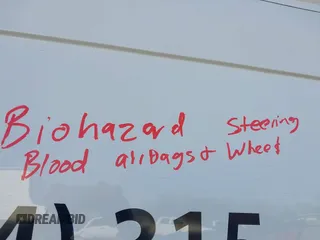 Biohazard Steering
Blood airbags + Wheel
DREAMBID
) 215